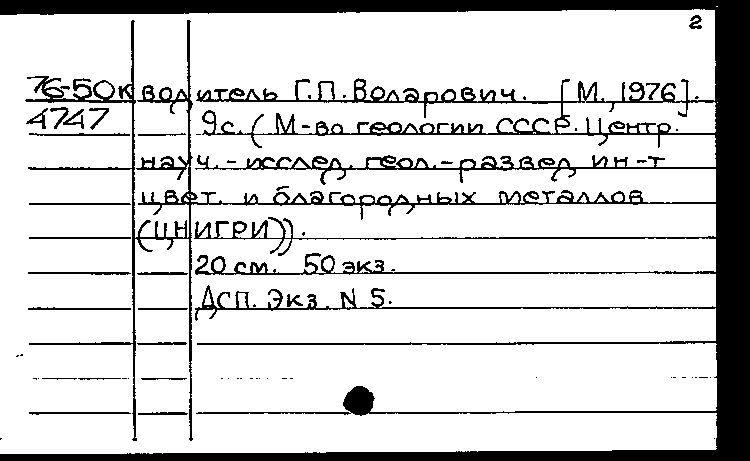 2
76-50к водитель Г.П. Воларович. [М., 1976].
4747 9с. (М-во геологии СССР. Центр.
науч.-исслед. геол.-развед. ин-т
цвет. и благородных металлов
(ЦНИГРИ)).
20 см. 50 экз.
ДСП. Экз. N 5.